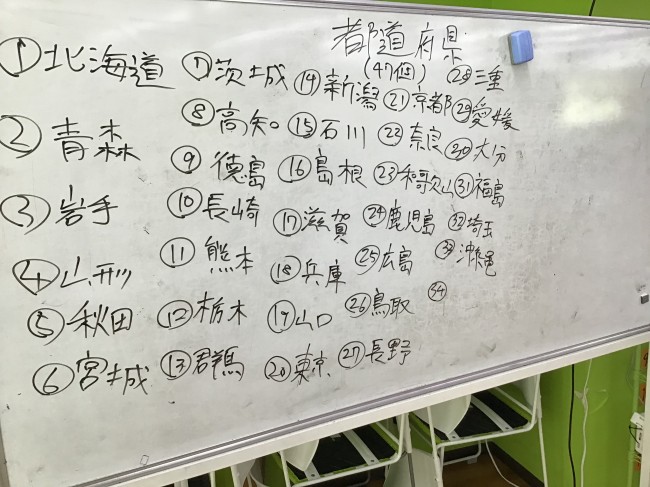 都道府県
(47個)
①北海道
②青森
③岩手
④山形
⑤秋田
⑥宮城
⑦茨城
⑧高知
⑨徳島
⑩長崎
⑪熊本
⑫栃木
⑬群馬
⑭新潟
⑮石川
⑯島根
⑰滋賀
⑱兵庫
⑲山口
⑳東京
㉑京都
㉒奈良
㉓和歌山
㉔鹿児島
㉕広島
㉖鳥取
㉗長野
㉘三重
㉙愛媛
㉚大分
㉛福島
㉜埼玉
㉝沖縄
㉞